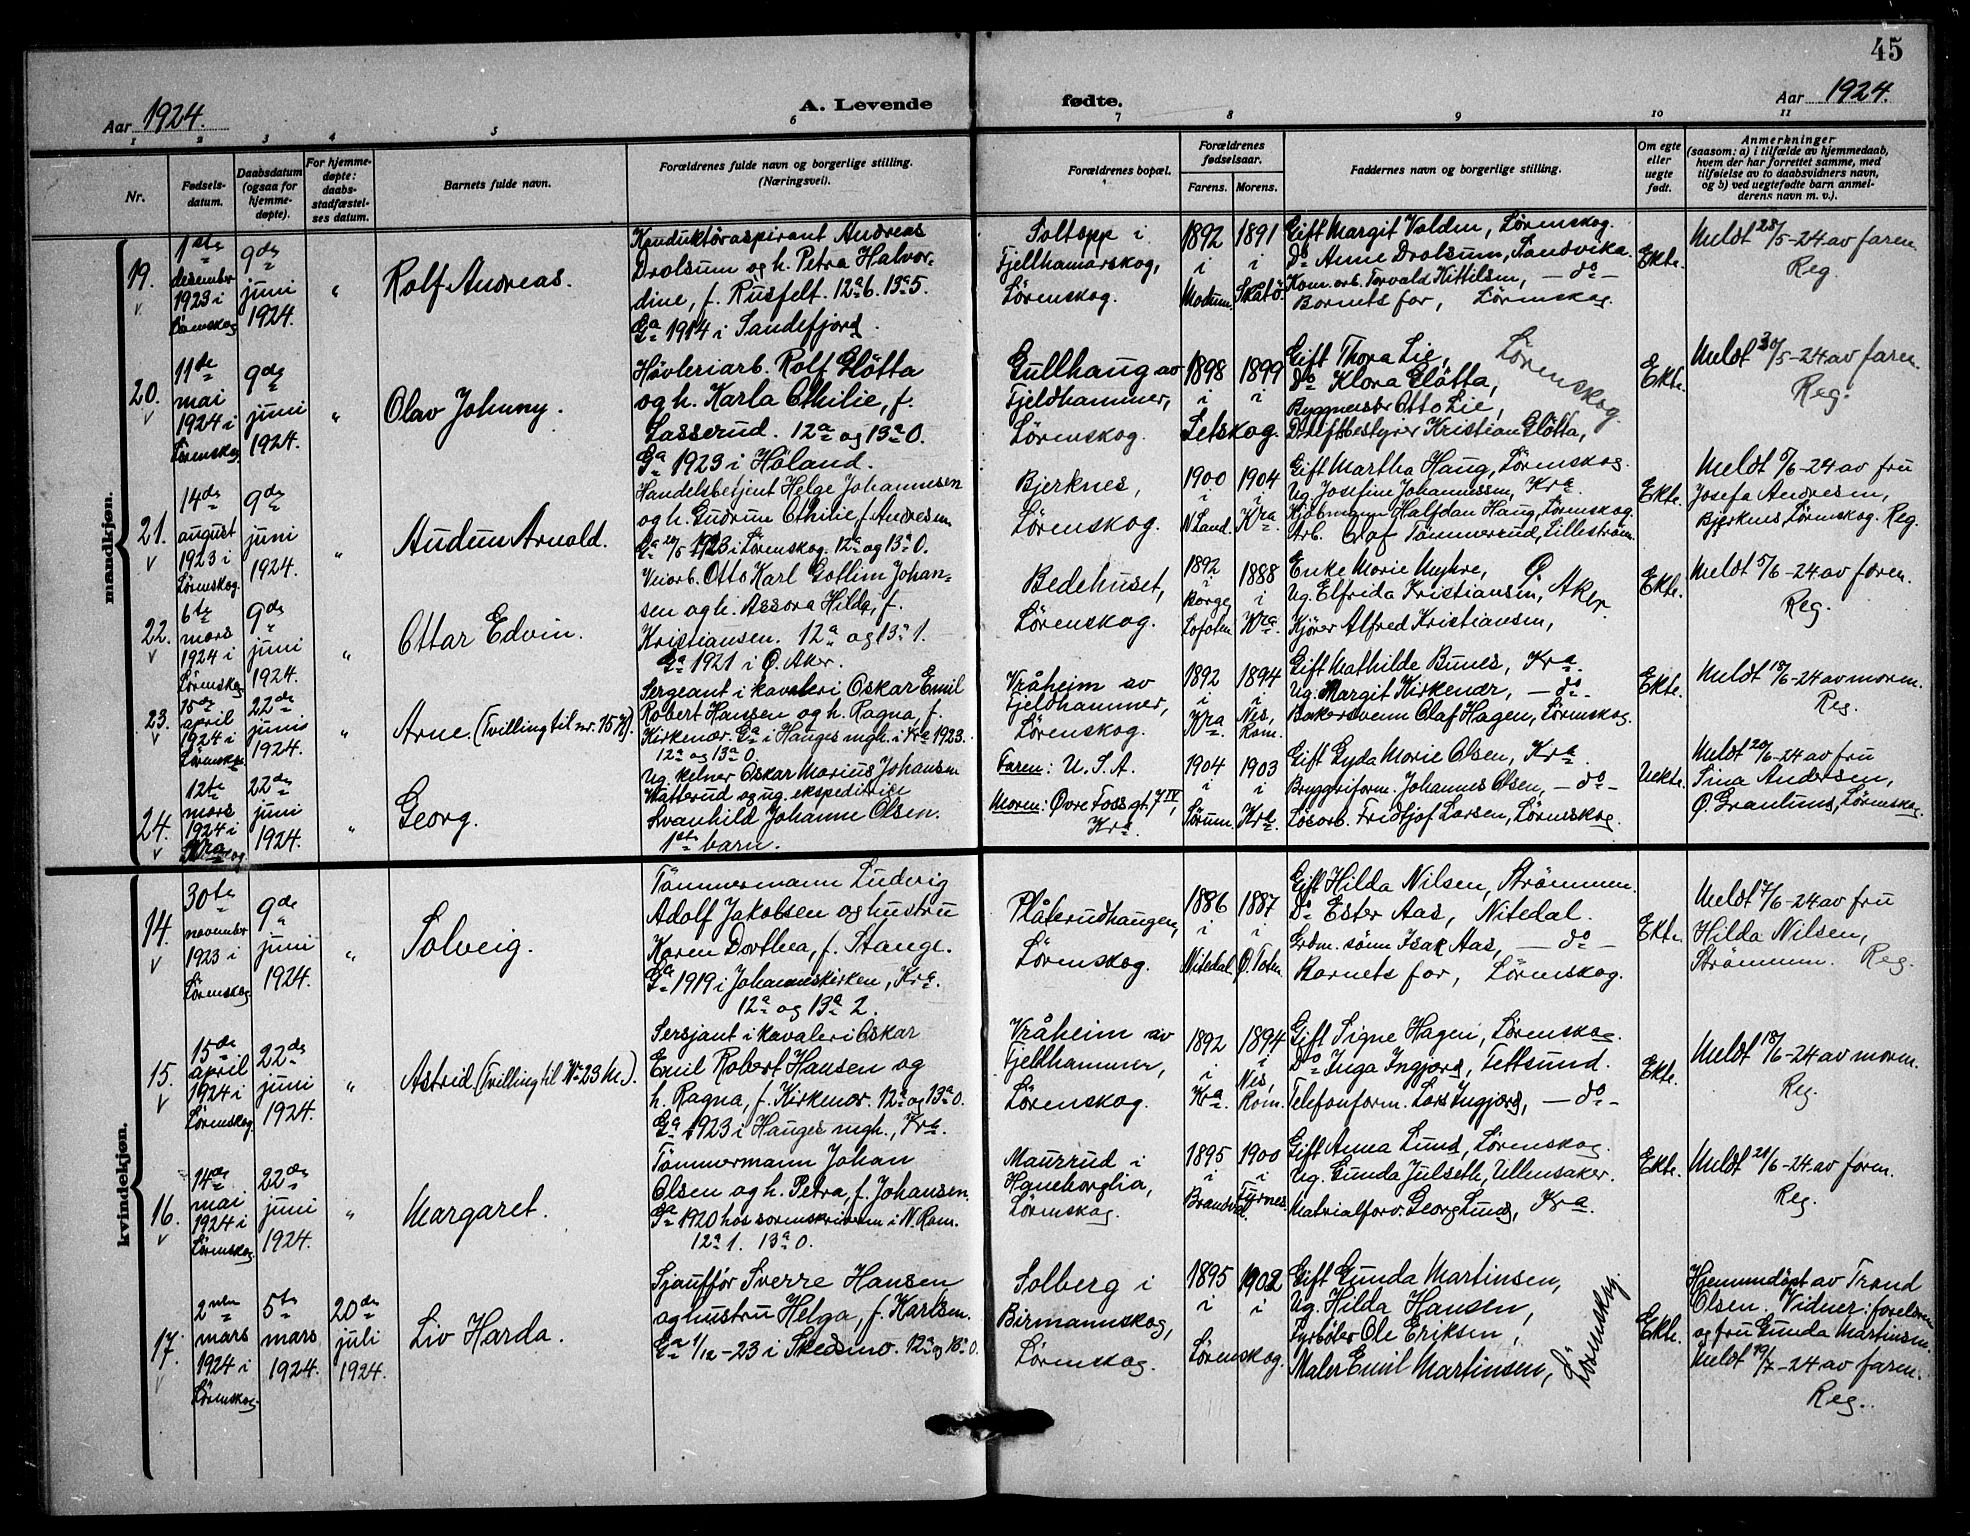 45
Aar 1924.
A. Levende fødte.
Aar 1924.
1 2 3 4 5 6 7 8 9 10 11
Nr.
Fødsels-
datum.
Daabsdatum
(ogsaa for
hjemme-
døpte).
For hjemme-
døpte:
daabs-
stadfæstel-
ses datum.
Barnets fulde navn.
Forældrenes fulde navn og borgerlige stilling.
(Næringsvei).
Forældrenes bopæl.
Forældrenes
fødselsaar.
Farens. Morens.
Faddernes navn og borgerlige stilling.
Om egte
eller
uegte
født.
Anmerkninger
(saasom: a) i tilfælde av hjemmedaab,
hvem der har forrettet samme, med
tilføielse av to daabsvidners navn,
og b) ved uegtefødte barn anmel-
derens navn m. v.).
mandkjøn.
19.
1ste
desember
1923 i
Lørenskog
9de
juni
1924.
"
Rolf Andreas.
Konduktøraspirant Andreas
Drolsum og h. Petra Halvor-
dine, f. Rusfelt. 12a6. 13a5.
Ga 1914 i Sandefjord.
Soltopp i
Fjellhamarskog,
Lørenskog.
1892
i
Modum.
1891
i
Skåtö.
Gift Margit Volden, Lørenskog.
Do Anne Drolsum, Sandvika.
Kom. arb. Torvald Kittilsen, – do –
Barnets far, Lørenskog.
Ekte.
Meldt 28/5-24 av faren.
Reg.
20.
11de
mai
1924 i
Lørenskog
9de
juni
1924.
"
Olav Johnny.
Høvleriarb. Rolf Gløtta
og h. Karla Othilie, f.
Lasserud. 12a og 13a 0.
Ga 1923 i Høland.
Gullhaug av
Fjeldhammer,
Lørenskog.
1898
i
1899
i
Setskog.
Gift Thora Lie,
Do Klara Gløtta,
Byggmester Otto Lie,
Driftbestyrer Kristian Gløtta,
Lørenskog
Ekte.
Meldt 30/5-24 av faren.
Reg.
21.
14de
august
1923 i
Lørenskog.
9de
juni
1924.
"
Audun Arnold.
Handelsbetjent Helge Johannesen
og h. Gudrun Othilie, f. Andresen
Ga 20/5 1923 i Lørenskog. 12a og 13a 0.
Bjerknes,
Lørenskog.
1900
i
N. Land.
1904
i
Kra.
Gift Martha Haug, Lørenskog.
Ug. Josefine Johannessen, Kra.
Kjøbmann Halfdan Haug, Lørenskog.
Arb. Olaf Tømmerrud, Lillestrøm.
Ekte.
Meldt 6/6-24 av fru
Josefa Andresen,
Bjerknes, Lørenskog. Reg.
22.
6te
mars
1924 i
Lørenskog
9de
juni
1924.
"
Ottar Edvin.
Veiarb. Otto Karl Gotlim Johan-
sen og h. Assora Hilda, f.
Kristiansen. 12a og 13a 1.
Ga 1921 i Ø. Aker.
Bedehuset,
Lørenskog.
1892
i
Borge,
Lofoten.
1888
i
Kra.
Enke Marie Myhre,
Ug. Elfrida Kristiansen,
Kjører Alfred Kristiansen,
Ø. Aker
Ekte.
Meldt 5/6-24 av faren.
Reg.
23.
15de
april
1924 i
Lørenskog
22de
juni
1924.
"
Arne. (Tvilling til nr. 15 K).
Sergeant i kavaleri Oskar Emil
Robert Hansen og h. Ragna, f.
Kirkenær. Ga i Hauges mgh. i Kra 1923.
12a og 13a 0.
Vråheim av
Fjeldhammer,
Lørenskog.
1892
i
Kra.
1894
i
Nes,
Rom.
Gift Mathilde Bunes, Kra.
Ug. Margit Kirkenær, – do –
Bakersvenn Olaf Hagen, Lørenskog.
Ekte.
Meldt 18/6-24 av moren.
Reg.
24.
12te
mars
1924 i
Kra
22de
juni
1924.
"
Georg.
Ug. kelner Oskar Marius Johansen
Watterud og ug. ekspeditrice
Svanhild Johanne Olsen.
1ste barn.
Faren: U.S.A.
Moren: Øvre Fossgt. 7 IV,
Kra.
1904
i
Sørum.
1903
i
Kra.
Gift Gyda Marie Olsen, Kra.
Bryggeriform. Johannes Olsen, – do –
Løsarb. Fridtjof Larsen, Lørenskog.
Uekte.
Meldt 20/6-24 av fru
Sina Andresen,
Ø. Granlund, Lørenskog.
kvindekjøn.
14.
30te
november
1923 i
Lørenskog
9de
juni
1924.
"
Solveig.
Tømmermann Ludvig
Adolf Jakobsen og hustru
Karen Dorthea, f. Stange.
Ga 1919 i Johanneskirken, Kra.
12a og 13a 2.
Plåterudhaugen,
Lørenskog.
1886
i
Nitedal.
1887
i
Ø. Toten.
Gift Hilda Nilsen, Strømmen.
Do Ester Aas, Nitedal.
Grdm. sønn Isak Aas, – do –
Barnets far, Lørenskog.
Ekte.
Meldt 7/6-24 av fru
Hilda Nilsen,
Strømmen. Reg.
15.
15de
april
1924 i
Lørenskog
22de
juni
1924.
"
Astrid. (Tvilling til No 23 M.).
Sersjant i kavaleri Oskar
Emil Robert Hansen og
h. Ragna, f. Kirkenær. 12a og 13a 0.
Ga 1923 i Hauges mgh., Kra.
Vråheim av
Fjellhammer,
Lørenskog.
1892
i
Kra.
1894
i
Nes,
Rom.
Gift Signe Hagen, Lørenskog.
Do Inga Ingjord, Fetsund.
Telefonform. Lars Ingjord, – do –
Ekte.
Meldt 18/6-24 av moren.
Reg.
16.
14de
mai
1924 i
Lørenskog.
22de
juni
1924.
"
Margaret.
Tømmermann Johan
Olsen og h. Petra, f. Johansen.
Ga 1920 hos sorenskriveren i N. Rom.
12a 1. 13a 0.
Maurrud i
Haneborglia,
Lørenskog.
1895
i
Brandval.
1900
i
Furnes.
Gift Anna Lund, Lørenskog.
Ug. Gunda Julseth, Ullensaker.
Matrialforv. Georg Lund, Kra.
Ekte.
Meldt 21/6-24 av faren.
Reg.
17.
2nen
mars
1924 i
Lørenskog.
5te
mars
1924.
20de
juli
1924.
Liv Harda.
Sjauffør Sverre Hansen
og hustru Helga, f. Karlsen.
Ga 1/12-23 i Skedsmo. 12a og 13a 0.
Solberg i
Birmannskog,
Lørenskog.
1895
i
1902
i
Lørenskog.
Gift Gunda Martinsen,
Ug. Hilda Hansen,
Fyrbøter Ole Eriksen,
Maler Emil Martinsen,
Lørenskog.
Ekte.
Hjemmedøpt av Trond
Olsen. Vidner: foreldrene
og fru Gunda Martinsen.
Meldt 19/7-24 av faren.
Reg.